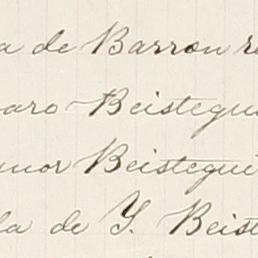 a de Barron re
aro Beistegui
nor Beistegui
la de Y. Beist